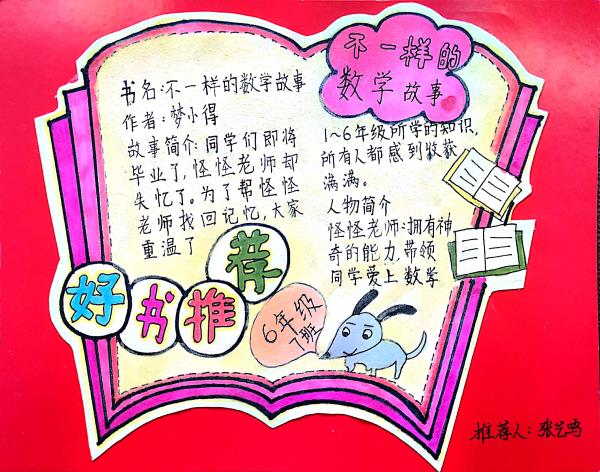 不一样的
数学故事
书名:不一样的数学故事
作者:梦小得
故事简介:同学们即将
毕业了,怪怪老师却
失忆了。为了帮怪怪
老师找回记忆,大家
重温了
1~6年级所学的知识,
所有人都感到收获
满满。
人物简介
怪怪老师:拥有神
奇的能力,带领
同学爱上数学
好书推荐
6年级
7班
推荐人:张艺鸣